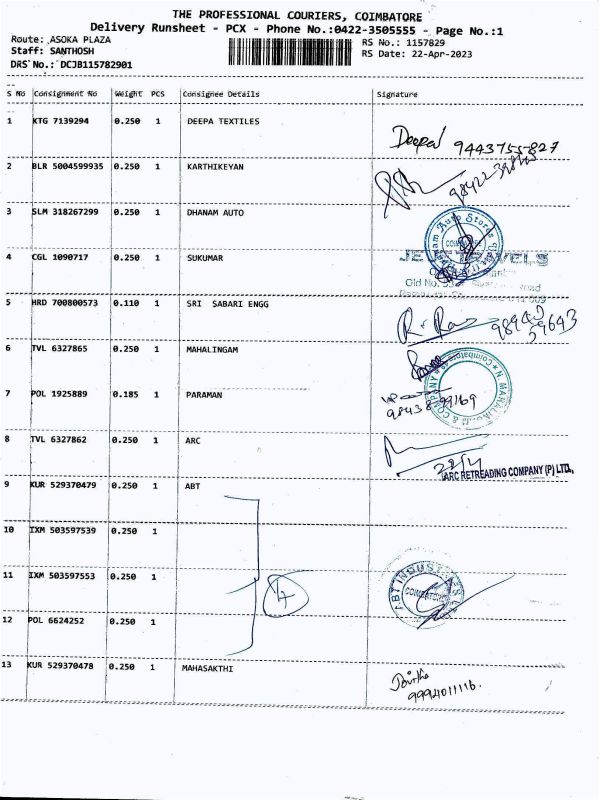 THE PROFESSIONAL COURIERS, COIMBATORE
Delivery Runsheet - PCX - Phone No.:0422-3505555 - Page No.:1
Route: ASOKA PLAZA
RS No.: 1157829
Staff: SANTHOSH
RS Date: 22-Apr-2023
DRS No.: DCJB115782901
S No Consignment No Weight PCS Consignee Details Signature
1 KTG 7139294 0.250 1 DEEPA TEXTILES
Deepa 9443755827
2 BLR 5004599935 0.250 1 KARTHIKEYAN
3 SLM 318267299 0.250 1 DHANAM AUTO
4 CGL 1090717 0.250 1 SUKUMAR
5 HRD 700800573 0.110 1 SRI SABARI ENGG
6 TVL 6327865 0.250 1 MAHALINGAM
7 POL 1925889 0.185 1 PARAMAN
98438-99169
8 TVL 6327862 0.250 1 ARC
ARC RETREADING COMPANY (P) LTD.,
9 KUR 529370479 0.250 1 ABT
10 IXM 503597539 0.250 1
11 IXM 503597553 0.250 1
ABT INDUSTRIES
COIMBATORE
12 POL 6624252 0.250 1
13 KUR 529370478 0.250 1 MAHASAKTHI
9994011116.